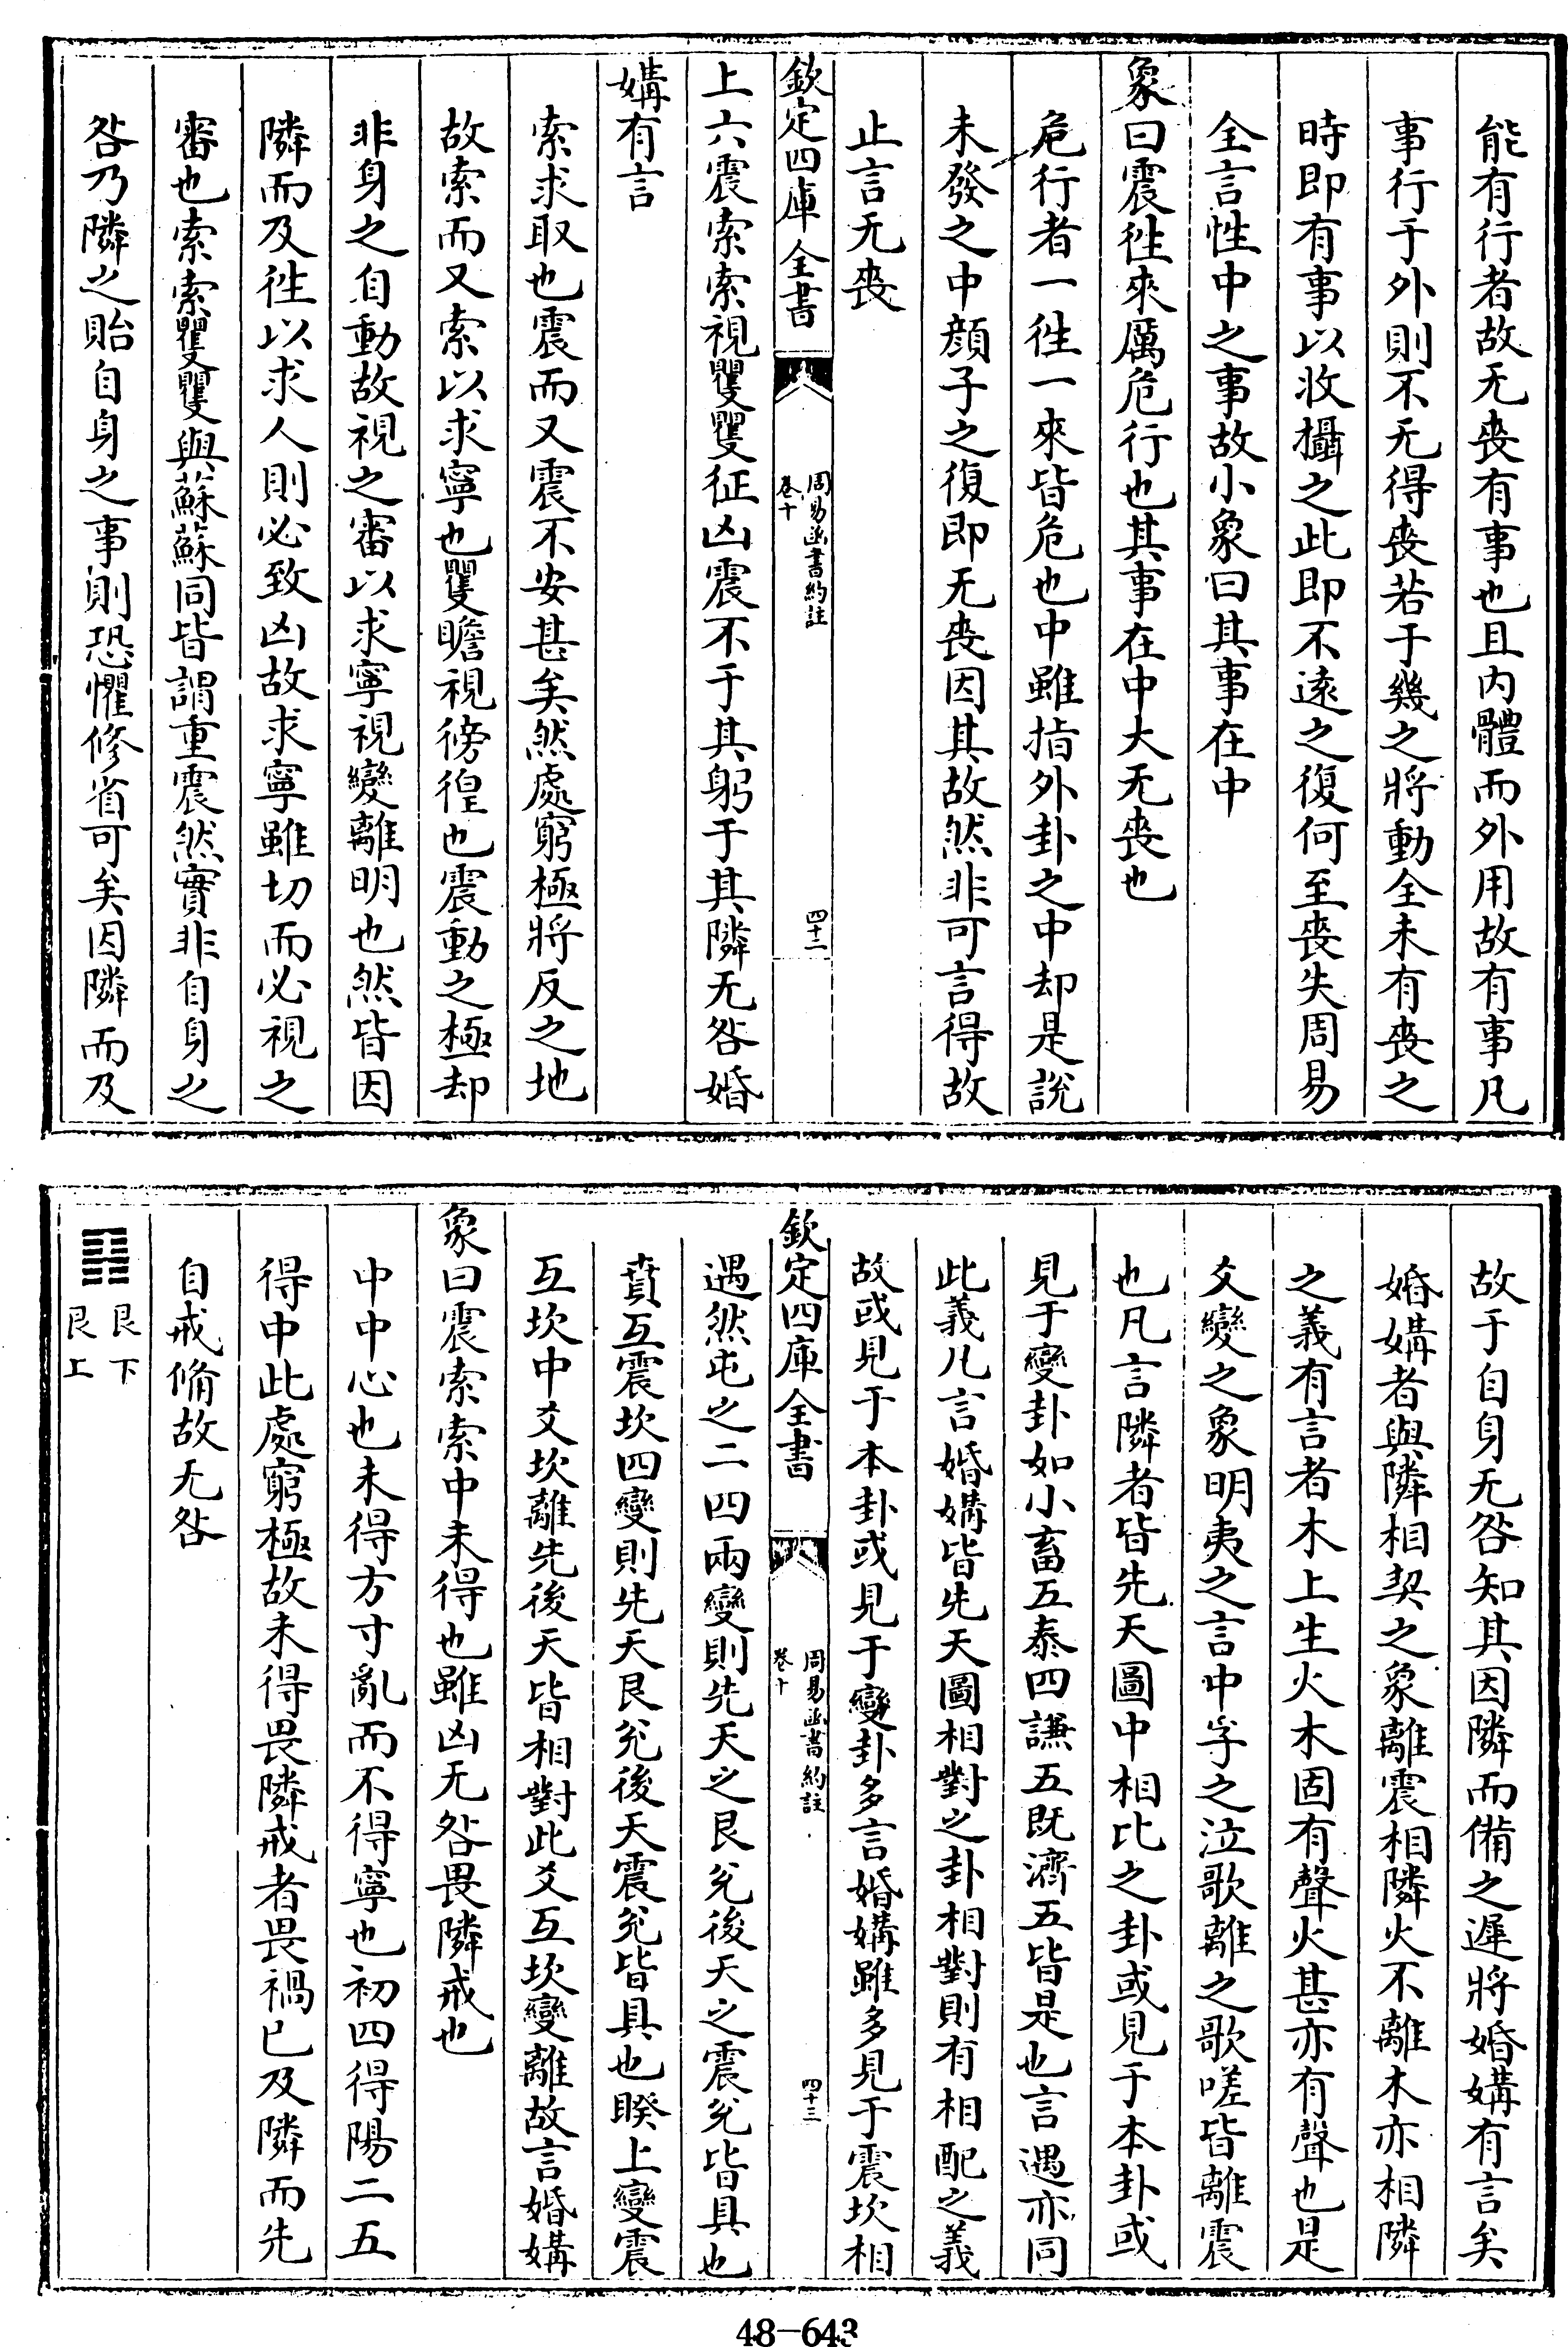 能有行者故无喪有事也且內體而外用故有事凡
事行于外則不无得喪若于幾之將動全未有喪之
時即有事以收攝之此即不逺之復何至喪失周易
全言性中之事故小象曰其事在中
象曰震徃來厲危行也其事在中大无喪也
危行者一徃一來皆危也中雖指外卦之中却是說
未發之中顔子之復即无喪因其故然非可言得故
止言无喪
欽定四庫全書
周易函書約註
卷十
四十二
上六震索索視矍矍征凶震不于其躬于其隣无咎婚
媾有言
索求取也震而又震不安甚矣然處窮極將反之地
故索而又索以求寧也矍瞻視徬徨也震動之極却
非身之自動故視之審以求寧視變離明也然皆因
隣而及徃以求人則必致凶故求寧雖切而必視之
審也索索矍矍與蘇蘇同皆謂重震然實非自身之
咎乃隣之貽自身之事則恐懼修省可矣因隣而及
故于自身无咎知其因隣而備之遲將婚媾有言矣
婚媾者與隣相契之象離震相隣火不離木亦相隣
之義有言者木上生火木固有聲火甚亦有聲也是
爻變之象明夷之言中孚之泣歌離之歌嗟皆離震
也凡言隣者皆先天圖中相比之卦或見于本卦或
見于變卦如小畜五泰四謙五既濟五皆是也言遇亦同
此義凡言婚媾皆先天圖相對之卦相對則有相配之義
故或見于本卦或見于變卦多言婚媾雖多見于震坎相
欽定四庫全書
周易函書約註
卷十
四十三
遇然屯之二四兩變則先天之艮兊後天之震兊皆具也
賁互震坎四變則先天艮兊後天震兊皆具也睽上變震
互坎中爻坎離先後天皆相對此爻互坎變離故言婚媾
象曰震索索中未得也雖凶无咎畏隣戒也
中中心也未得方寸亂而不得寧也初四得陽二五
得中此處窮極故未得畏隣戒者畏禍已及隣而先
自戒脩故无咎
䷳
艮下
艮上
48-643